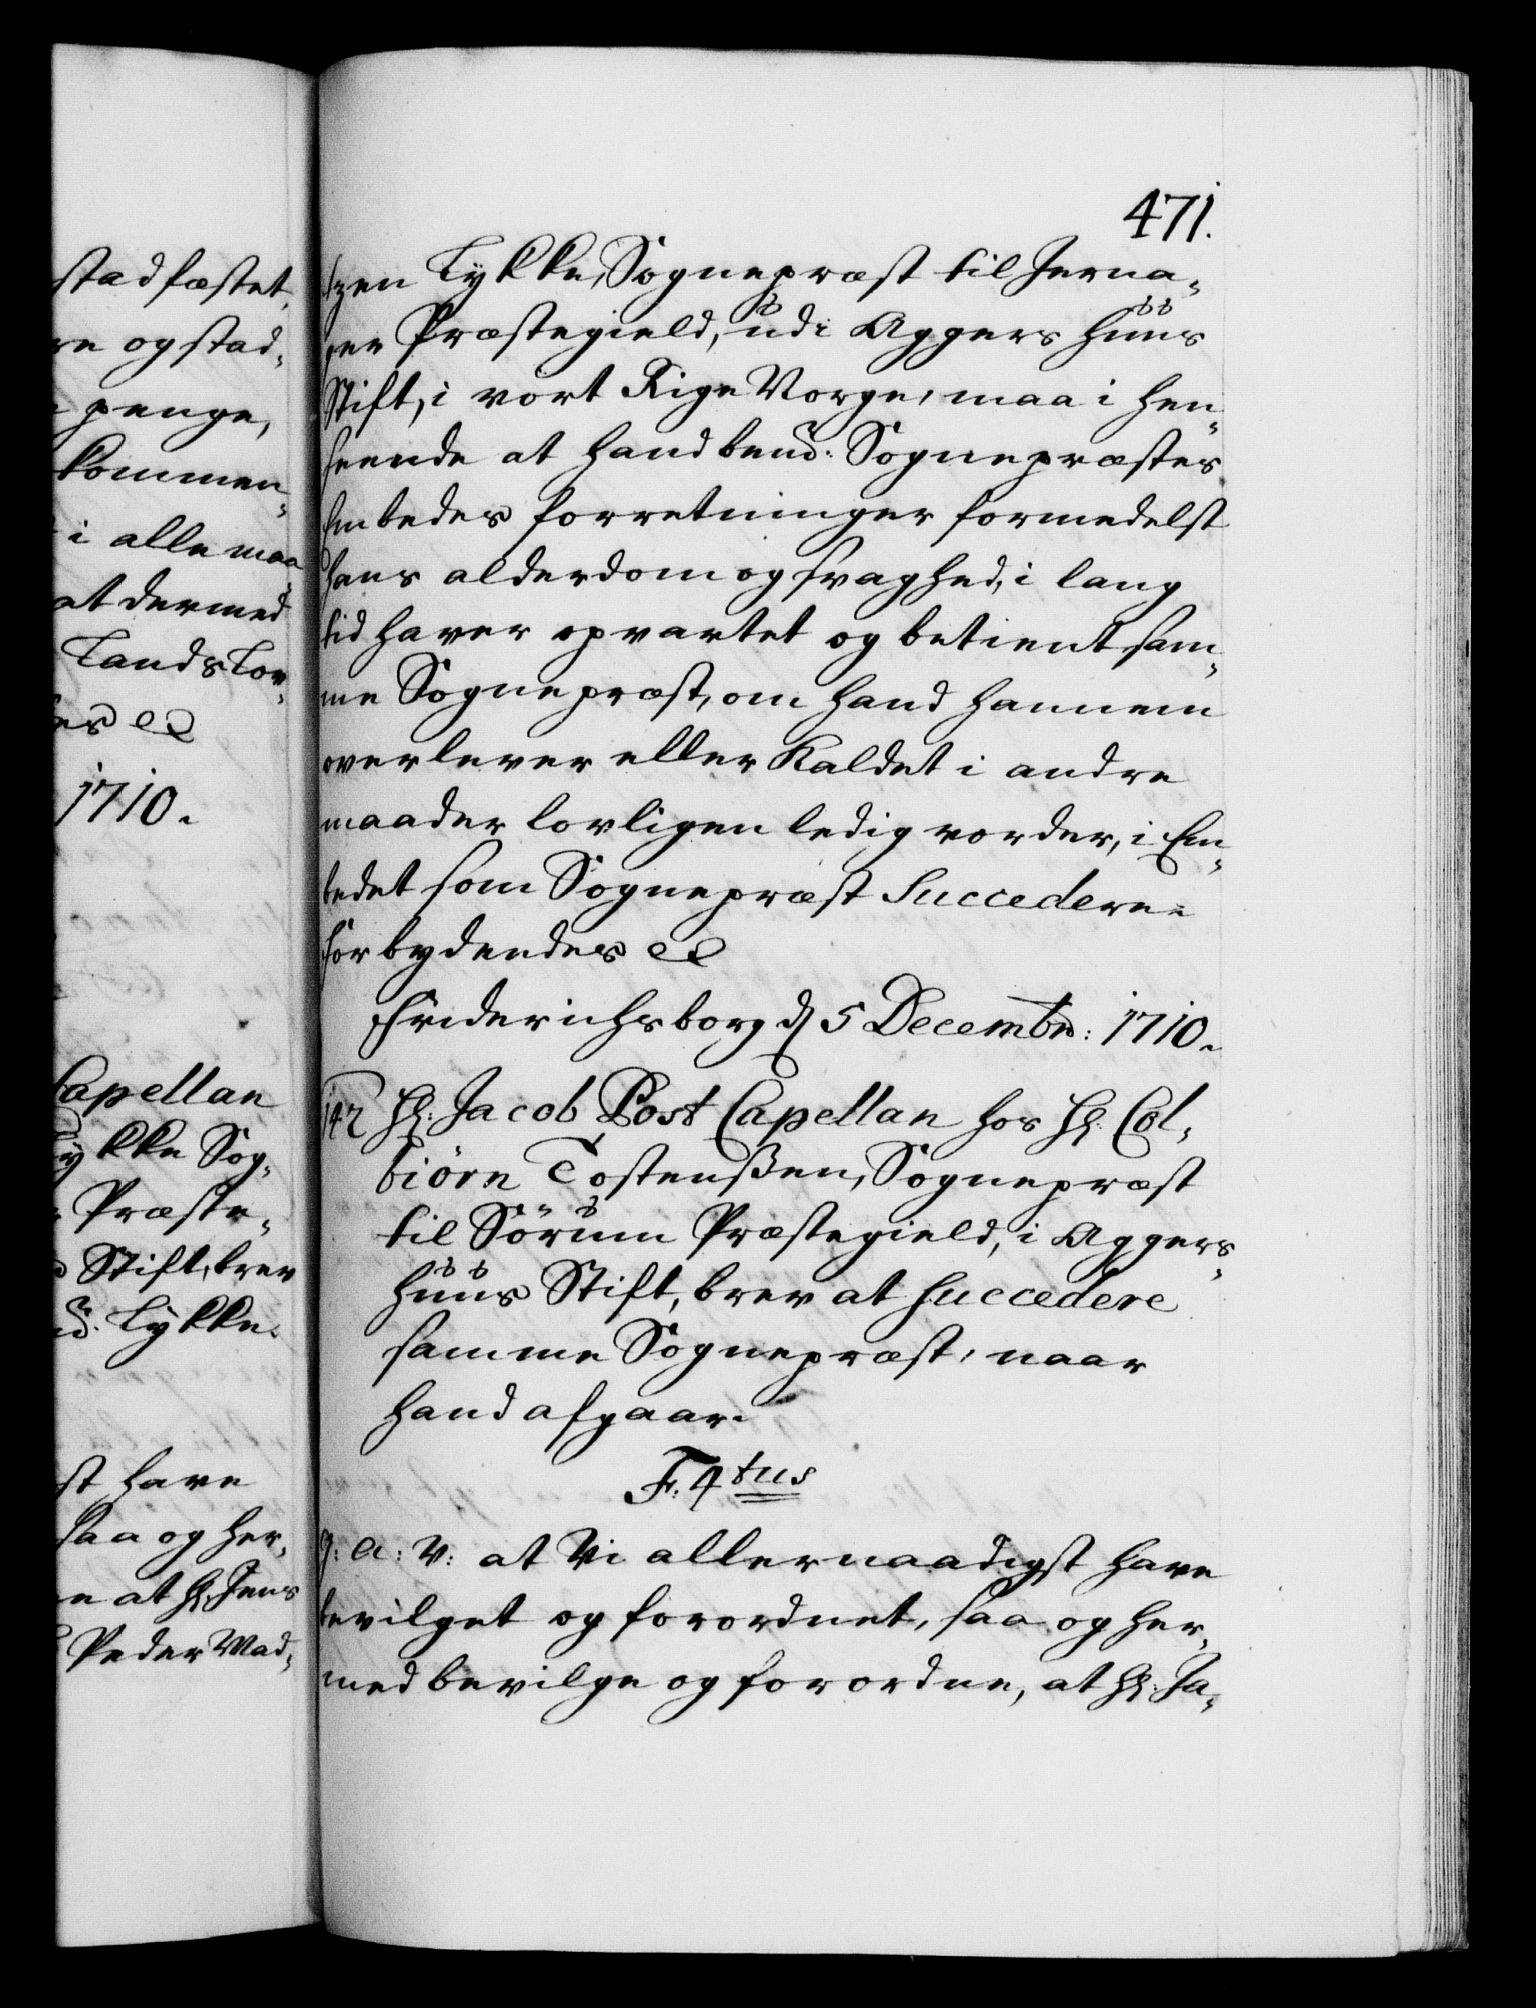 stadfæstet,
re og stad-
penge,
kommen-
i alle maa
at dermed
Lands Lov-
es ec
1710.
Capellan
Lykke Sog-
Præste-
Stift, brev
Lykke.
st have
saa og her-
at Hr. Jens
Peder Mad-
471.
tzen Lykke, Sognepræst til Jerna-
ger Præstegield, udi Aggers Huus
Stift, i vort Rige Norge, maa i hen-
seende at hand bemd. Sognepræstes
Embedes forretninger formedelst
hans alderdom og svaghed, i lang
tid haver opvartet og betient sam-
me Sognepræst, om hand hannem
overlever eller Kaldet i andre
maader lovligen ledig vorder, i Em-
bedet som Sognepræst Succedere-
forbydendes ec
Friderichsborg d 5 Decembr: 1710.
142 Hr: Jacob Post Capellan hos Hr: Col-
biörn Tostenßen, Sognepræst
til Sörum Præstegield, i Aggers-
huus Stift, brev at succedere
samme Sognepræst, naar
hand afgaar.
F: 4tus
G: A: V: at Vi allernaadigst have
bevilget og forordnet, saa og her-
med bevilge og forordne, at Hr: Ja-